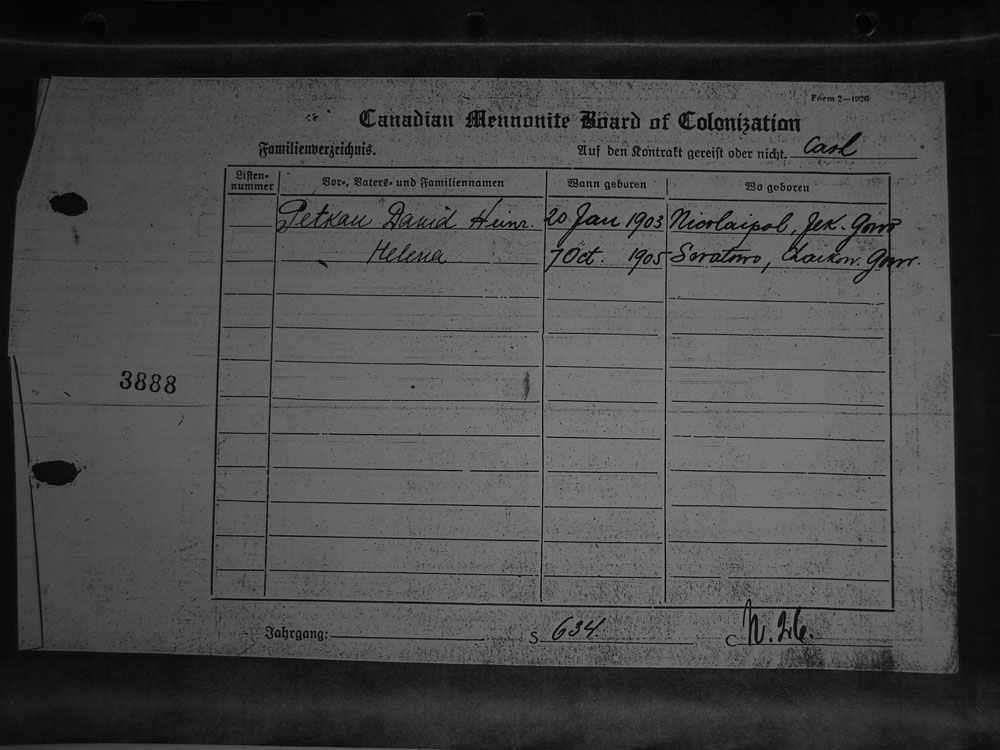 Form 2—1926
Canadian Mennonite Board of Colonization
Familienverzeichnis. Auf den Kontrakt gereist oder nicht. Cash
Listen-nummer Vor-, Vaters- und Familiennamen Wann geboren Wo geboren
Petkau David Heinr. 20 Jan 1903 Nicolaipol, Jek. Gouv
Helena 7 Oct. 1905 Charkow. Gouv.
3888
Jahrgang: S 634. C N. 26.